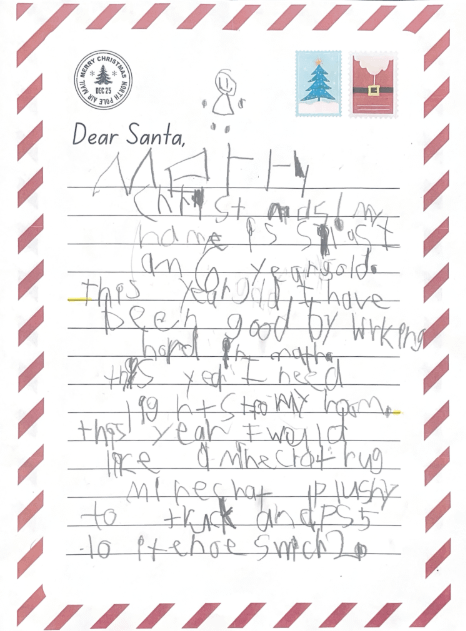 MERRY CHRISTMAS
DEC 25
NORTH POLE AIR MAIL
Dear Santa,
MerrY
Christmas! my
name is
am 6 years old.
this year I have
been good by Wrking
hard in
this year I need
lights to MY room.
this year I would
like a minecraft rug
minecraft plushy
to truck and PS5
to